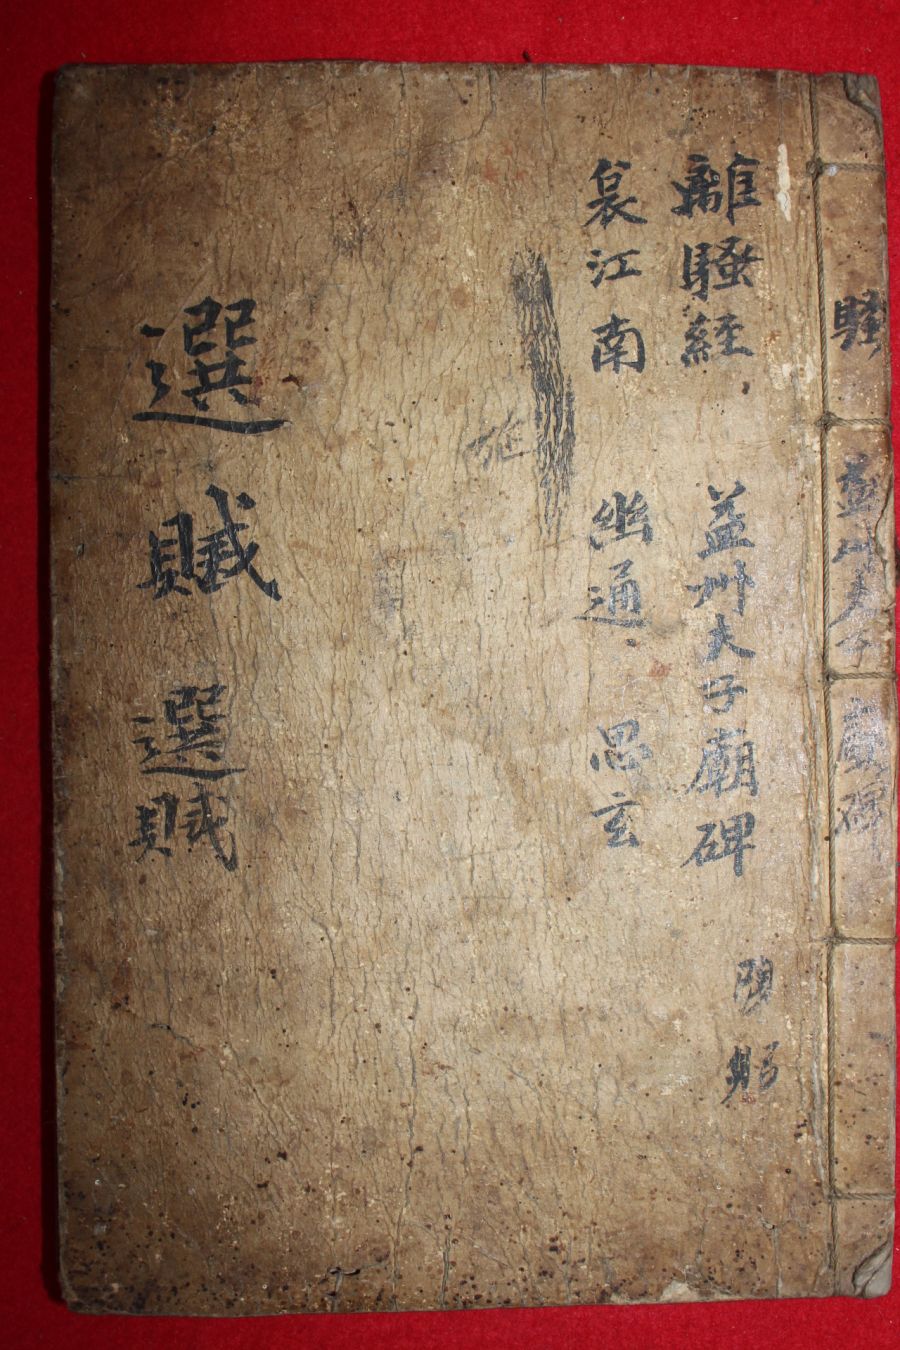 騷 益州夫子廟碑
離騷經 益州夫子廟碑
哀江南 幽通 思玄
選賦 選賦